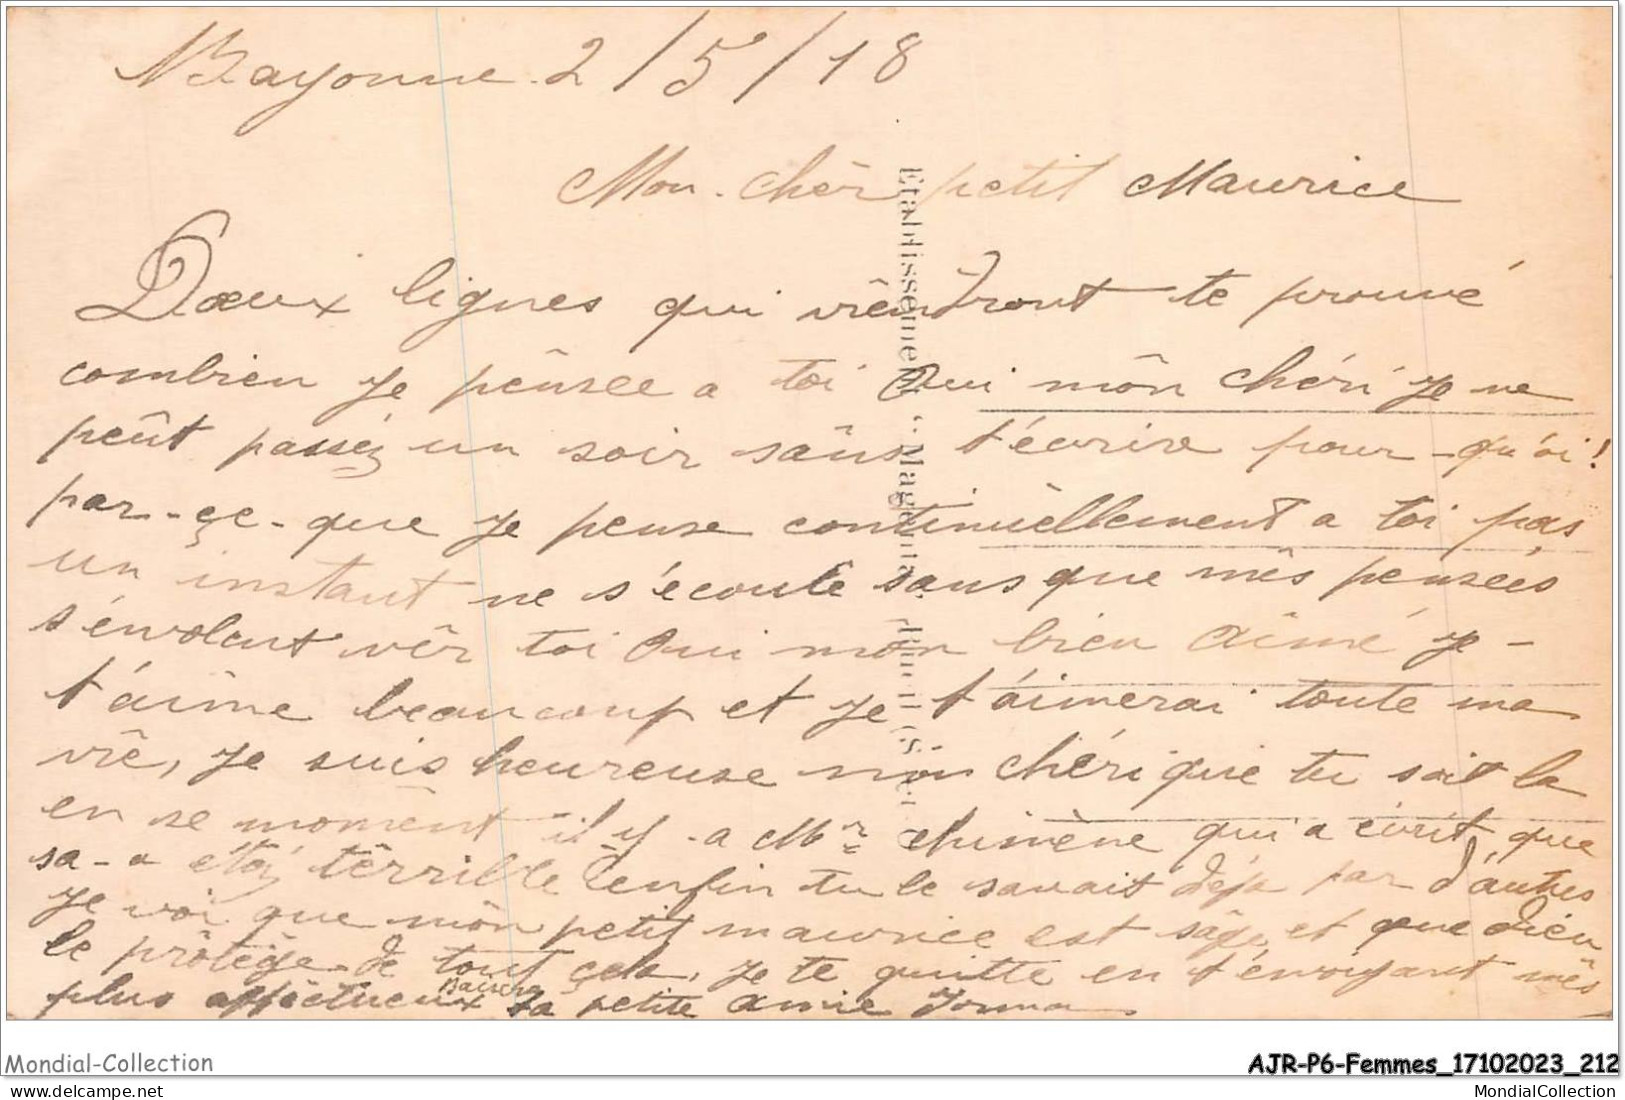 Bayonne 2/5/18
Mon chèr petit Maurice
Dœux lignes qui viêndront te prouvé
combien je pênsee a toi Oui môn chéri je ne
peût passéz un soir sâns t'écrire pour-qu'oi!
par-çe-que je pense continuèllement a toi pas
un instant ne s'écoule sans que mês pensées
s'énvolent vêr toi Oui môn bien aîmé je-
t'aîme beaucoup et je t'aimerai toute ma
vîe, je suis heureuse mon chéri que tu soit la
en se momênt il y a Mr Chimène qui a écrit que
sa-a étéz têrrible enfin tu le savait déja par d'autres
je voi que môn petit maurice est sâge et que dieu
le prôtêge de tout cela, je te quitte en t'envoyant mês
plus affèctueux Baisers Ta petite amie
Etablissements Magenta
Mondial-Collection
AJR-P6-Femmes_17102023_212
MondialCollection